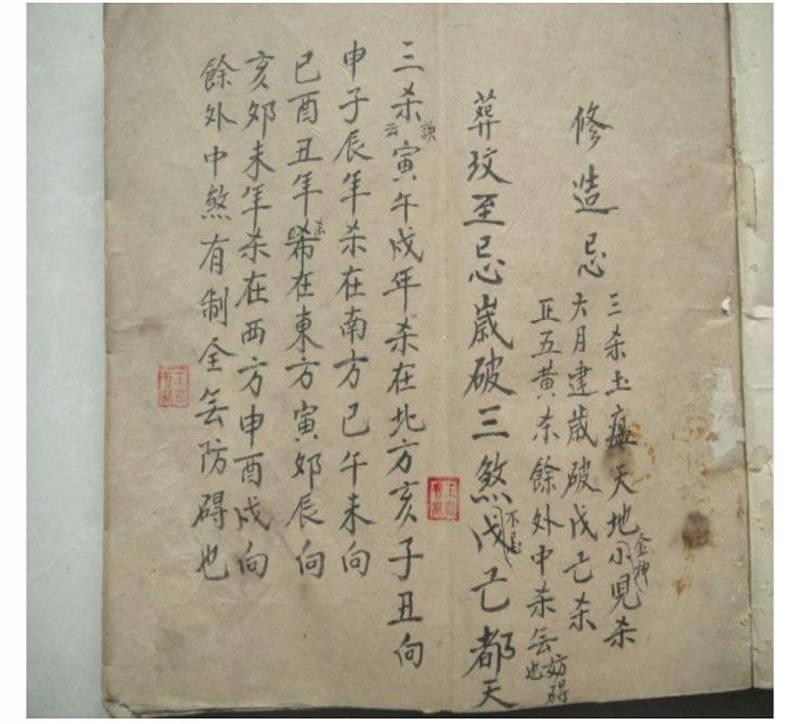 修造忌
三杀土瘟天地金神小児杀
大月建歲破戊己杀
正五黄杀餘外中杀无妨碍也
葬坟至忌歲破三煞戊己都天
不忌
三杀訣云寅午戌年杀在北方亥子丑向
申子辰年杀在南方巳午未向
巳酉丑年杀在東方寅卯辰向
亥卯未年杀在西方申酉戌向
餘外中煞有制全无防碍也